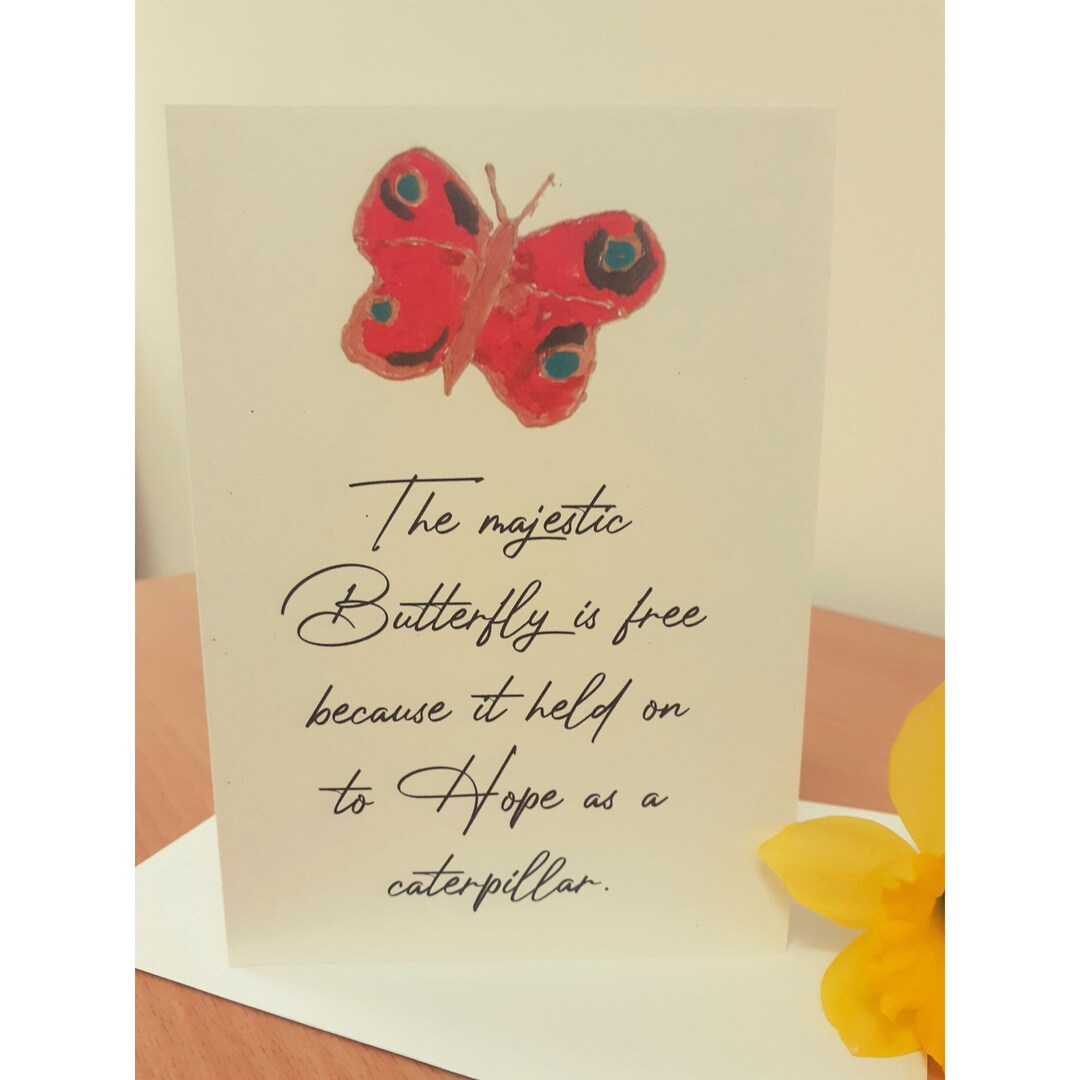 The majestic
Butterfly is free
because it held on
to Hope as a
caterpillar.